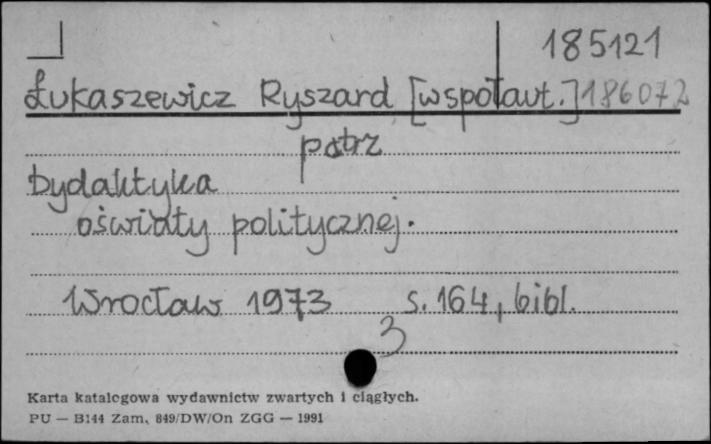 185121
Łukaszewicz Ryszard [współaut.] 186072
patrz
Dydaktyka
oświaty politycznej.
Wrocław 1973 s. 164, bibl.
3
Karta katalogowa wydawnictw zwartych i ciągłych.
PU — B144 Zam. 849/DW/On ZGG — 1991